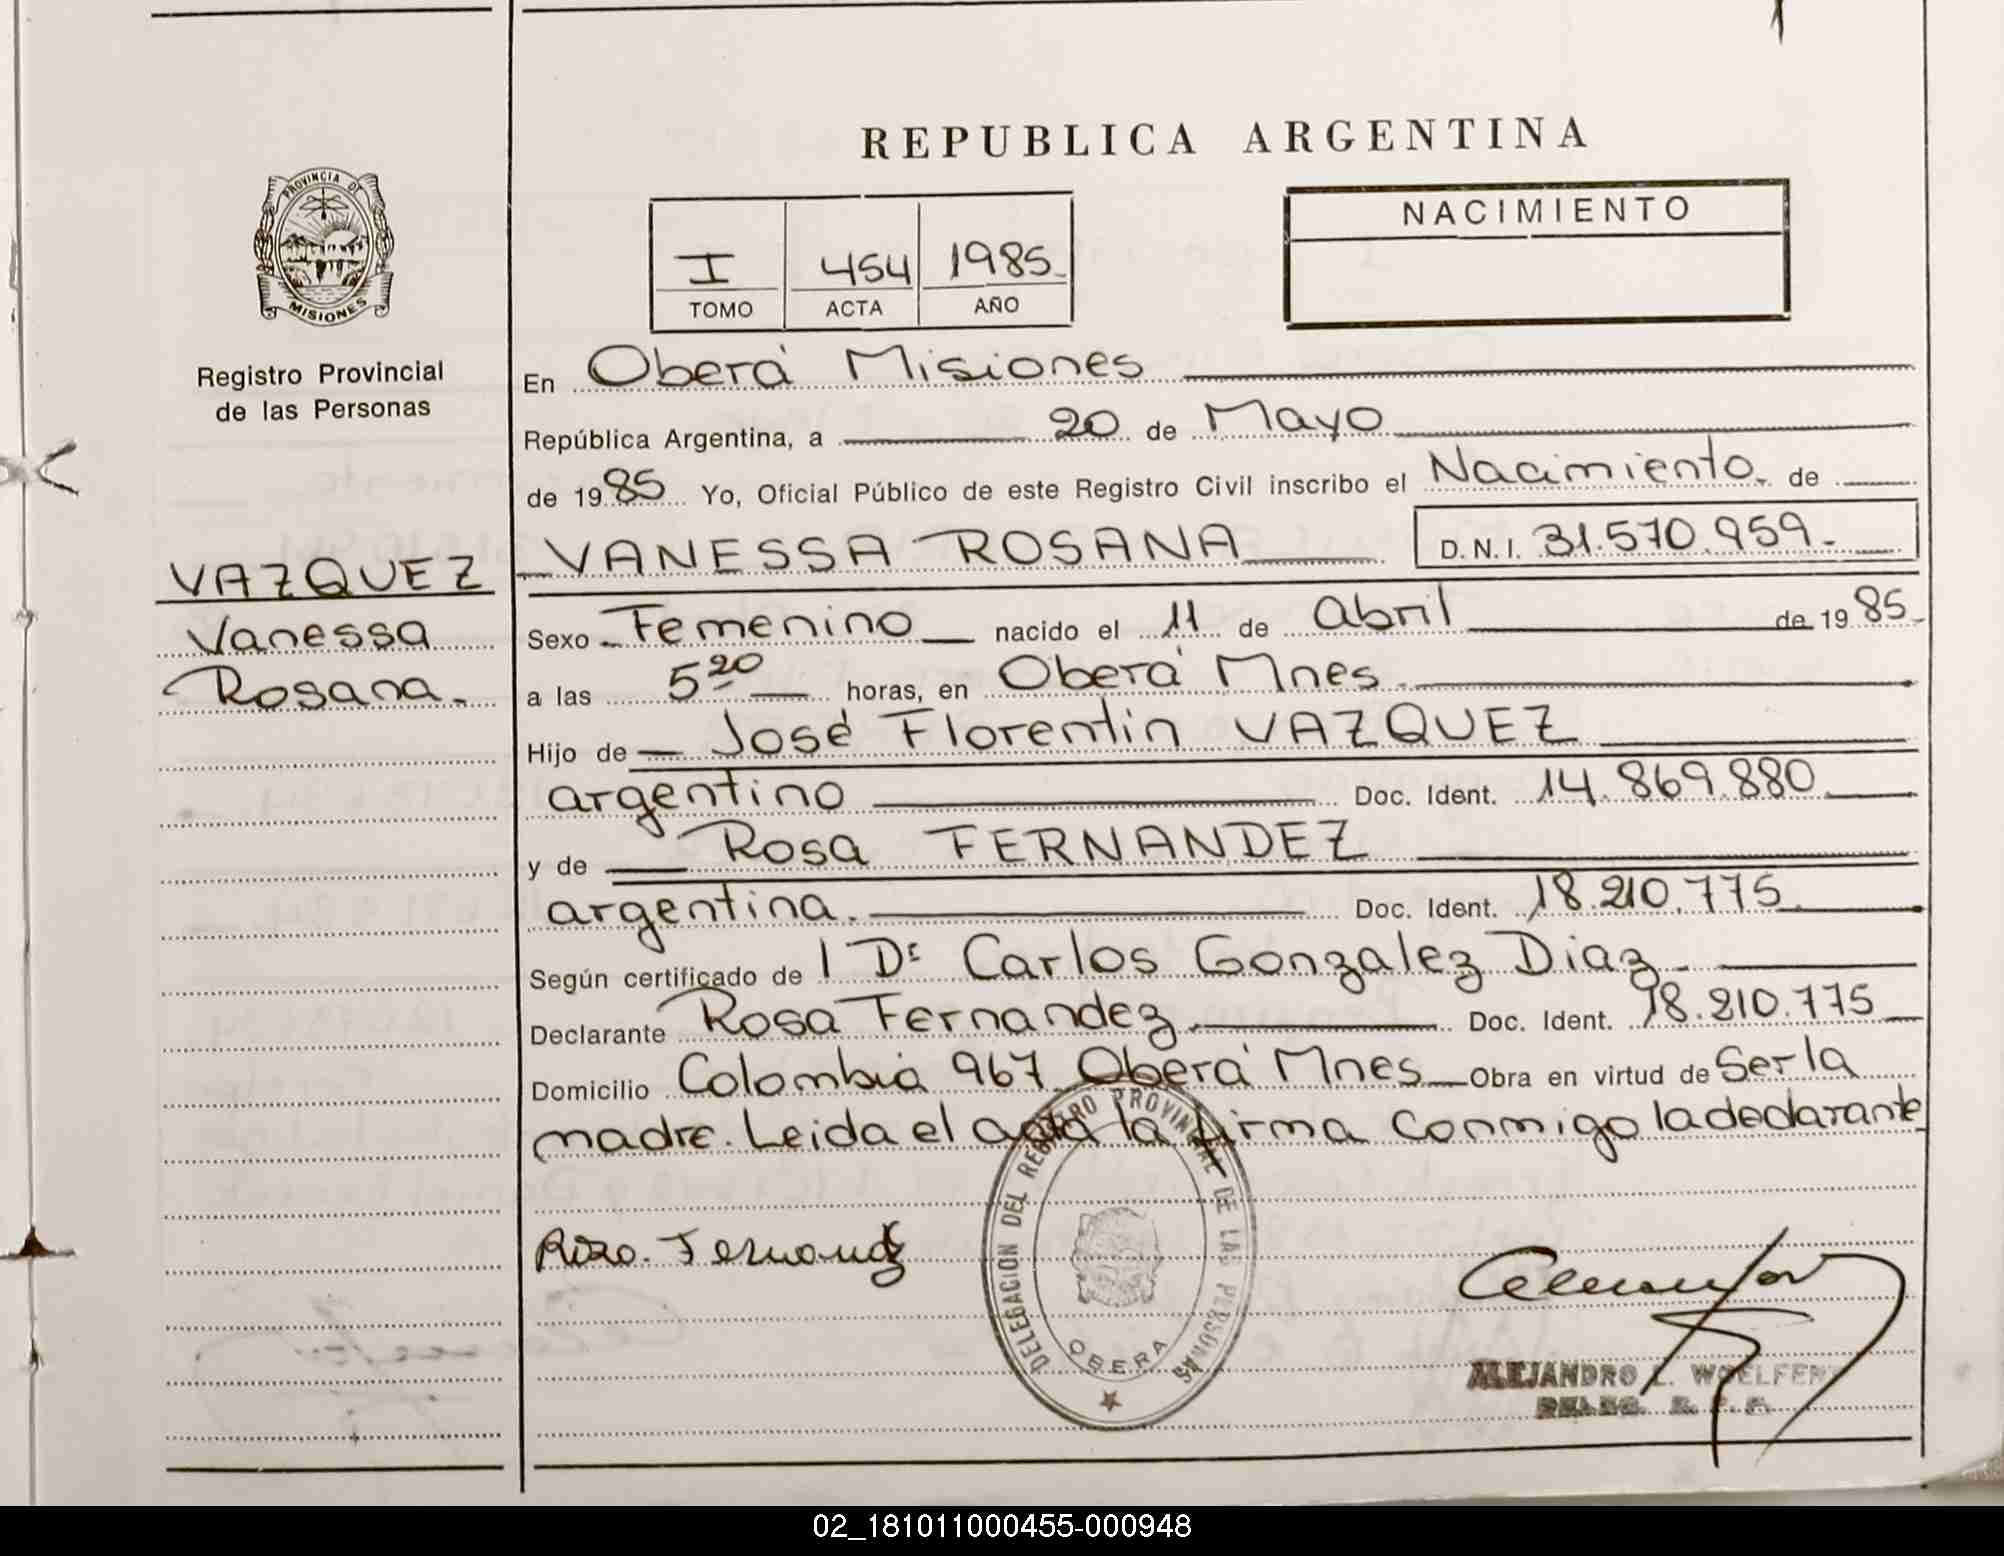 REPUBLICA ARGENTINA
PROVINCIA DE
MISIONES
Registro Provincial
de las Personas
I 454 1985
TOMO ACTA AÑO
NACIMIENTO
En Oberá Misiones
República Argentina, a 20 de Mayo
de 1985 Yo, Oficial Público de este Registro Civil inscribo el Nacimiento de
VANESSA ROSANA D.N.I. 31.570.959
VAZQUEZ
Vanessa
Rosana.
Sexo Femenino nacido el 11 de Abril de 1985
a las 5 20 horas, en Oberá Mnes.
Hijo de José Florentin VAZQUEZ
argentino Doc. Ident. 14.869.880
y de Rosa FERNANDEZ
argentina. Doc. Ident. 18.210.775
Según certificado de l Dr Carlos Gonzalez Diaz
Declarante Rosa Fernandez Doc. Ident. 18.210.775
Domicilio Colombia 967 Oberá Mnes Obra en virtud de Ser la
madre. Leida el acta la firma conmigo la declarante
Rosa. Fernandez
DELEGACION DEL REGISTRO PROVINCIAL DE LAS PERSONAS
OBERA
ALEJANDRO L.
DELEG. R. P. P.
02_181011000455-000948